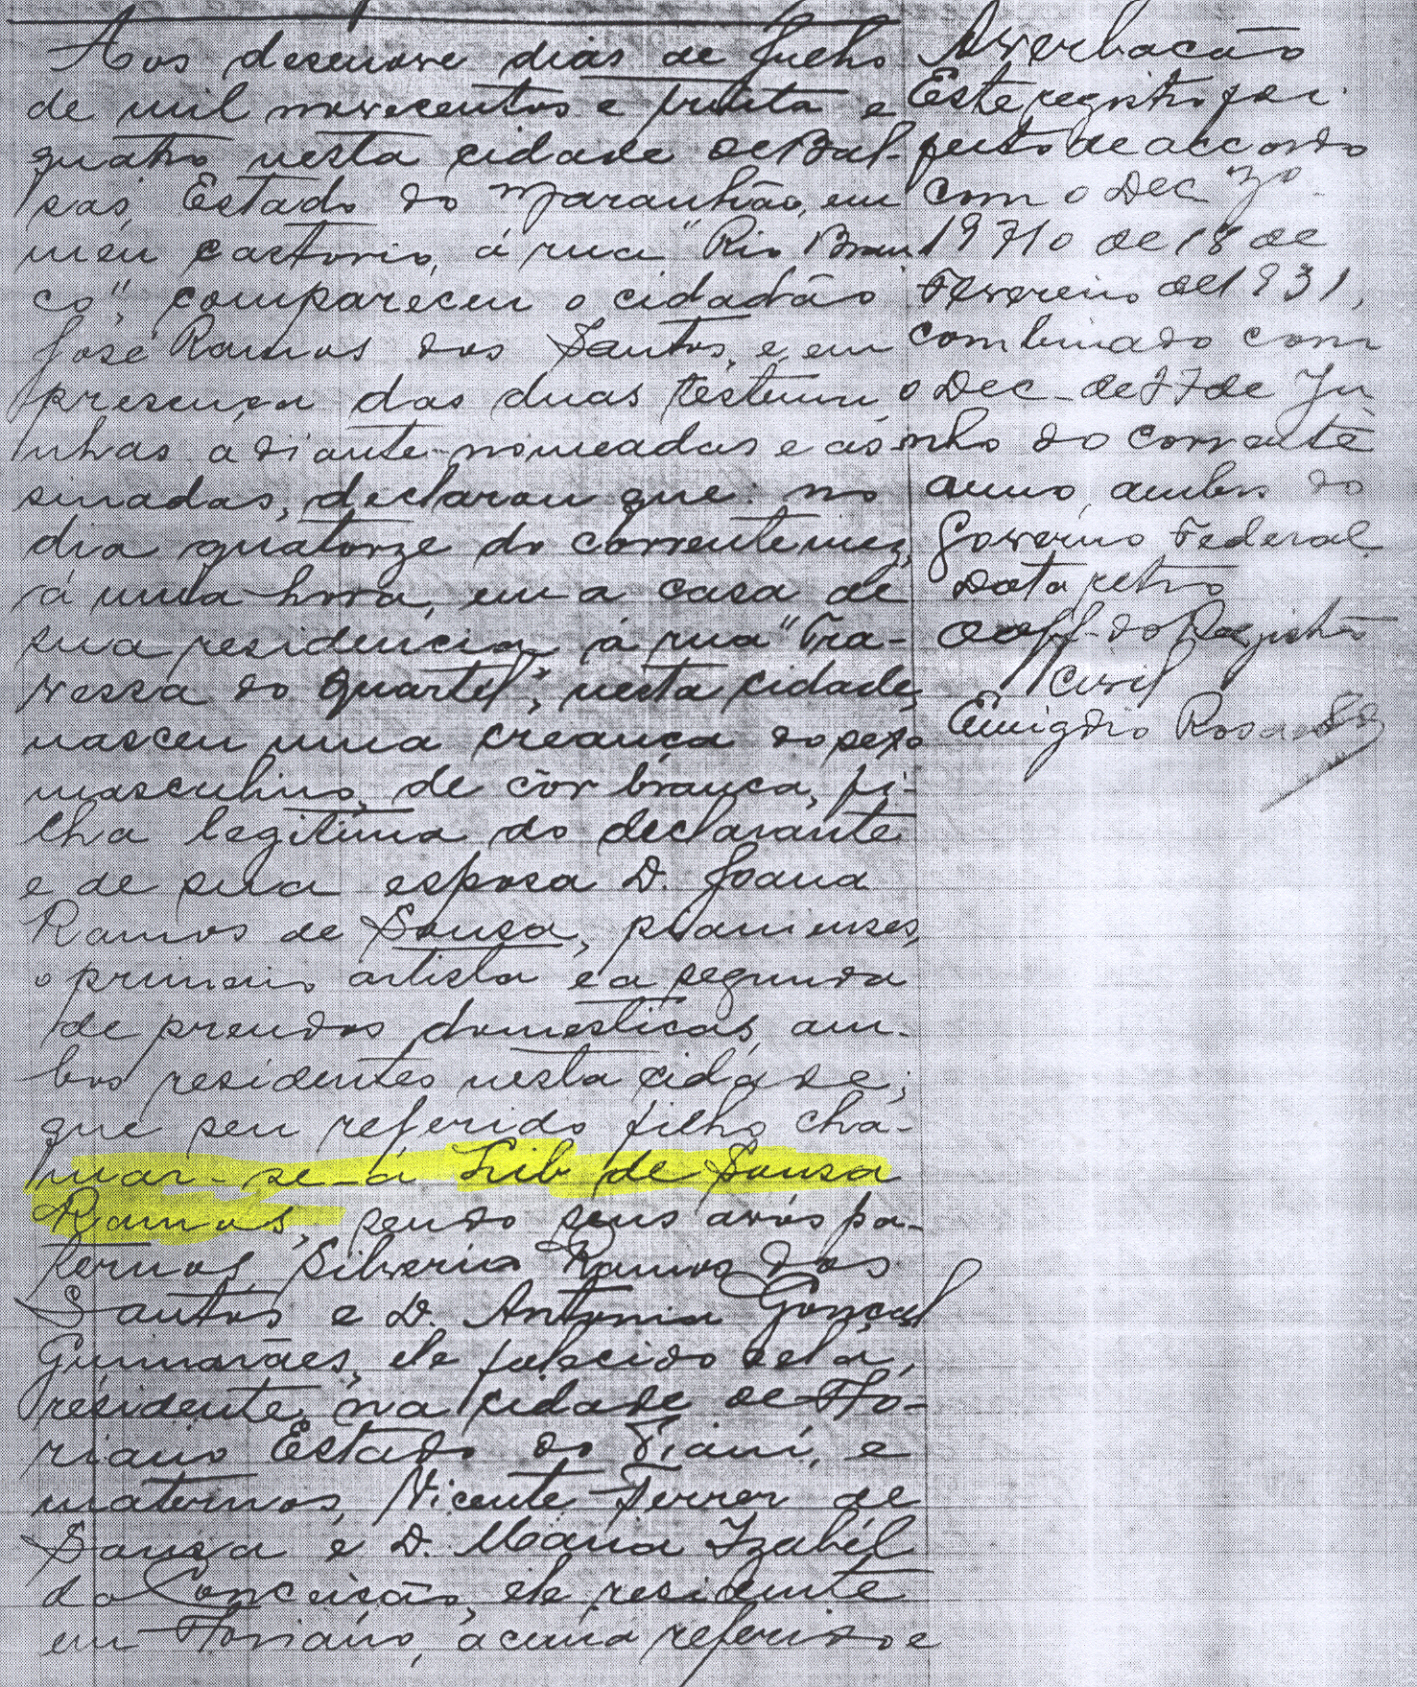 Aos desenove dias de Julho
de mil novecentos e trinta e
quatro nesta cidade de Bal-
sas, Estado do Maranhão, em
meu cartorio, á rua "Rio Bran
co", compareceu o cidadão
José Ramos dos Santos, e, em
presença das duas testemu
nhas adiante nomeadas e as-
sinadas, declarou que: no
dia quatorze do corrente mez,
á uma hora, em a casa de
sua residencia, á rua "Tra-
vessa do Quartel", nesta cidade,
nasceu uma creança do sexo
masculino, de côr branca, fi-
lha legitima do declarante
e de sua esposa D. Joana
Ramos de Sousa, piauienses,
o primeiro artista e a segunda
de prendas domesticas, am-
bos residentes nesta cidade;
que seu referido filho cha-
mar-se-á de Sousa
Ramos, sendo seus avós pa-
ternos, Silverio Ramos dos
Santos e D. Antonia
Guimarães, ele falecido e ela,
residente na cidade de Flo-
riano Estado do Piauí, e
maternos, Vicente Ferrer de
Souza e D. Maria Izabél
da Conceição, ele residente
em Floriano, acima referido e
Averbacão
Este registro foi
feito de accordo
com o Dec. nº
19710 de 18 de
Fevereiro de 1931,
combinado com
o Dec. de de Ju
nho do corrente
anno, ambos do
Governo Federal.
Data retro
O do Registro
Civil
Emigdio Rosa